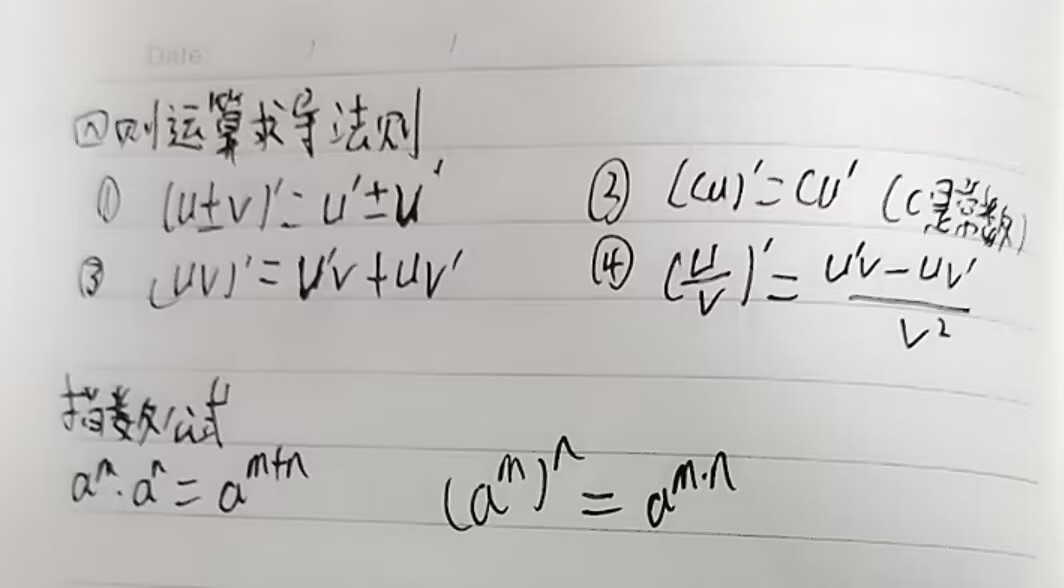 Date: / /
四则运算求导法则
① (u±v)′=u′±u′ ② (Cu)′=Cu′ (C是常数)
③ (uv)′=u′v+uv′ ④ (u/v)′=(u′v-uv′)/v²
指数公式
aᵐ·aⁿ=aᵐ⁺ⁿ (aᵐ)ⁿ=aᵐ·ⁿ